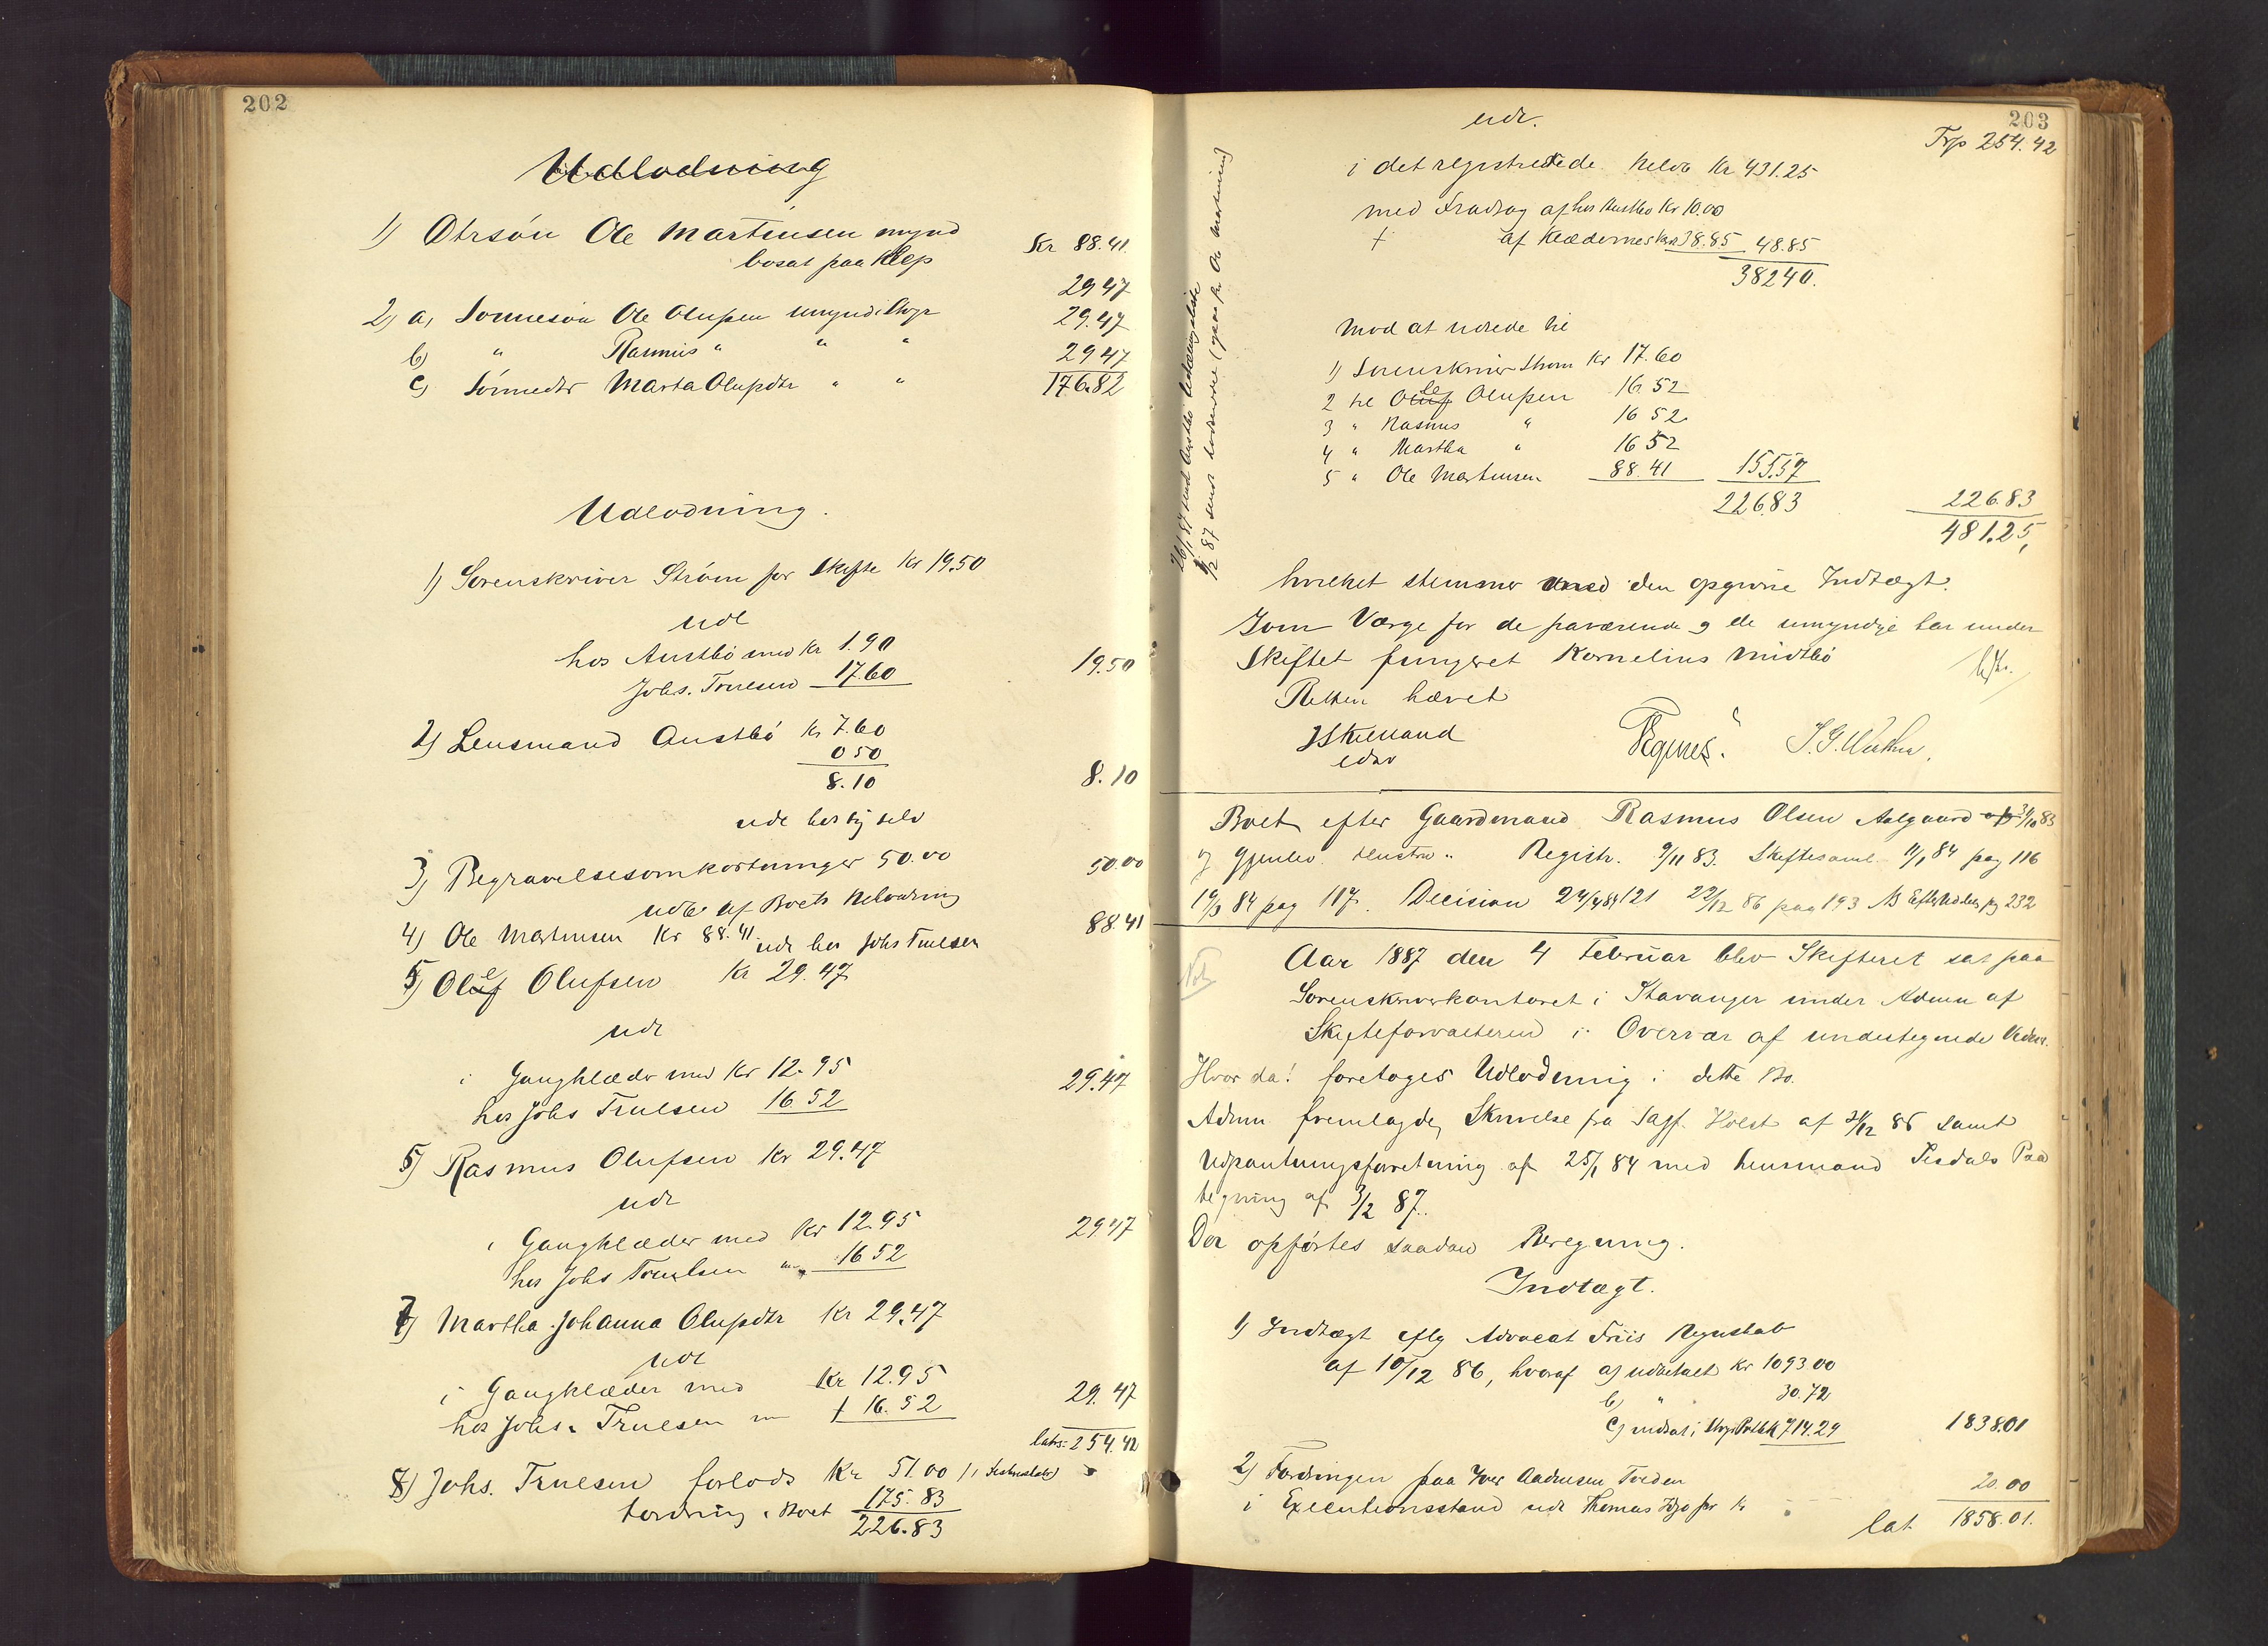 202
Udlodning
1) Ole Martinsen mynd Kr 88.41
bosat paa Klep
29 47
2) a, Sønnesøn Ole Olufsen umynd. 29.47
b) " Rasmus " " " 29 47
c) Sønnedtr Marta Olufsdtr " " 176.82
Udlodning.
1) Sorenskriver Strøm for Skifte Kr 19.50
udl
hos Austbø med Kr 1.90
Johs. Truelsen 17.60 19.50
2) Lensmand Austbø Kr 7.60
0 50
8.10 8.10
udl hos sig selv
3) Begravelsesomkostninger 50.00 50.00
udl af Boets Beholdning
4) Ole Martinsen Kr 88.41 udl hos Johs Truelsen 88.41
5) Ole Olufsen Kr 29.47
udl
i Gangklæder med Kr 12.95
hos Johs Truelsen 16 52 29.47
6) Rasmus Olufsen Kr 29.47
udl
i Gangklæder med Kr 12.95
hos Johs Truelsen " 16 52 29 47
7) Martha Johanna Olufsdtr Kr 29.47
udl
i Gangklæder med Kr 12.95
hos Johs. Truelsen " 16.52 29.47
lats: 254.42
8) Johs. Truelsen forlods Kr 51.00
fordring i Boet 175.83
226.83
203
udl.
Trp 254.42
i det registrerede Kr 431.25
med Fradrag af hos Austbo Kr 10.00
+ af Klæderne Kr 38.85 48.85
382 40.
Mod at udrede til
1) Sorenskriver Strøm Kr 17.60
2 til Ole Olufsen 16 52
3 " Rasmus " 16 52
4 " Martha " 16 52
5 " Ole Martinsen 88.41 155.57
226.83 226.83
481.25,
hvilket stemmer med den opgivne Indtægt.
Som Værge for de fraværende og de umyndige har under
Skiftet fungeret Kornelius Midtbø
Retten hævet
J.G. Walther.
Boet efter Gaardmand Rasmus Olsen Aalgaard 83
og gjenlev. Hustru " Registr. 9/11 83. Skiftesaml. 11/1 84 pag 116
84 pag 117. Decision 24/4 84 121 22/12 86 pag 193 pg 232
Not.
Aar 1887 den 4 Februar blev Skifteret sat paa
Sorenskriverkontoret i Stavanger under Admin af
Skifteforvalteren i Overvær af undertegnede Vidner.
Hvor da! foretoges Udlodning i dette Bo.
Admin fremlagde, Skrivelse fra Sagf. Holst af 86 samt
Udpantningsforretning af 25/1 84 med Lensmand Paa
tegning af 3/2 87.
Der opførtes saadan Beregning.
Indtægt.
1) Indtægt eflg Advocat Friis Regnskab
af 10/12 86, hvoraf a) udbetalt Kr 1093 00
b) " 30.72
c) indsat i 714.29 1838.01
2) Fordringen paa Iver Aadnesen Tveden
i Executionsstand udl Thomas for Kr 20.00
lat 1858.01.